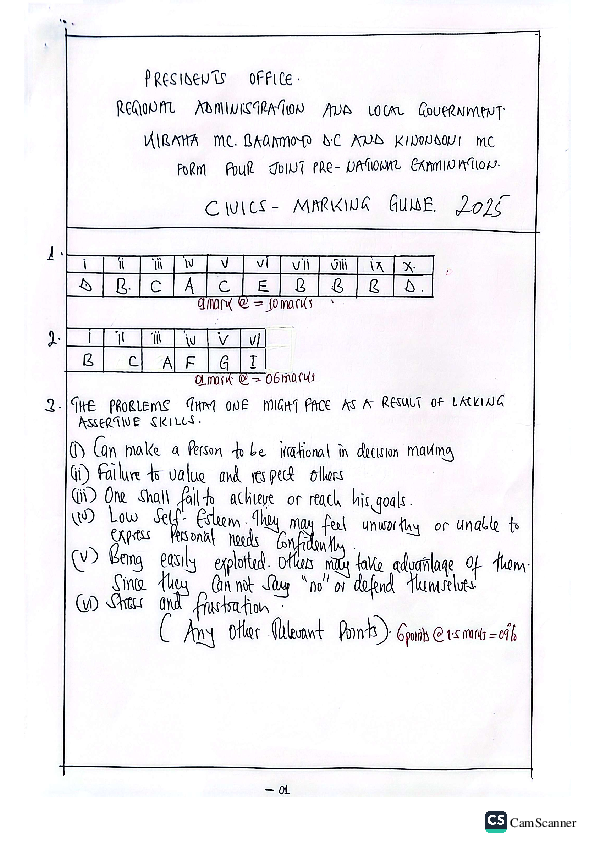 PRESIDENTS OFFICE.
REGIONAL ADMINISTRATION AND LOCAL GOVERNMENT.
KIBAHA MC. BAGAMOYO D.C AND KINONDONI MC
FORM FOUR JOINT PRE-NATIONAL EXAMINATION.
CIVICS - MARKING GUIDE. 2025
1.
i ii iii iv v vi vii viii ix x.
D B. C A C E B B B D.
01 mark @ = 10 marks
2.
i ii iii iv v vi
B C A F G I
01 mark @ = 06 marks
3. THE PROBLEMS THAT ONE MIGHT FACE AS A RESULT OF LACKING
ASSERTIVE SKILLS.
(i) Can make a Person to be irrational in decision making
(ii) Failure to value and respect others
(iii) One shall fail to achieve or reach his goals.
(iv) Low Self-Esteem. They may feel unworthy or unable to
express Personal needs Confidently.
(v) Being easily exploited. Others may take advantage of them.
Since they Can not Say "no" or defend themselves
(vi) Stress and frustration.
(Any Other Relevant Points). 6 points @ 1.5 marks = 09%
- 01
CS CamScanner